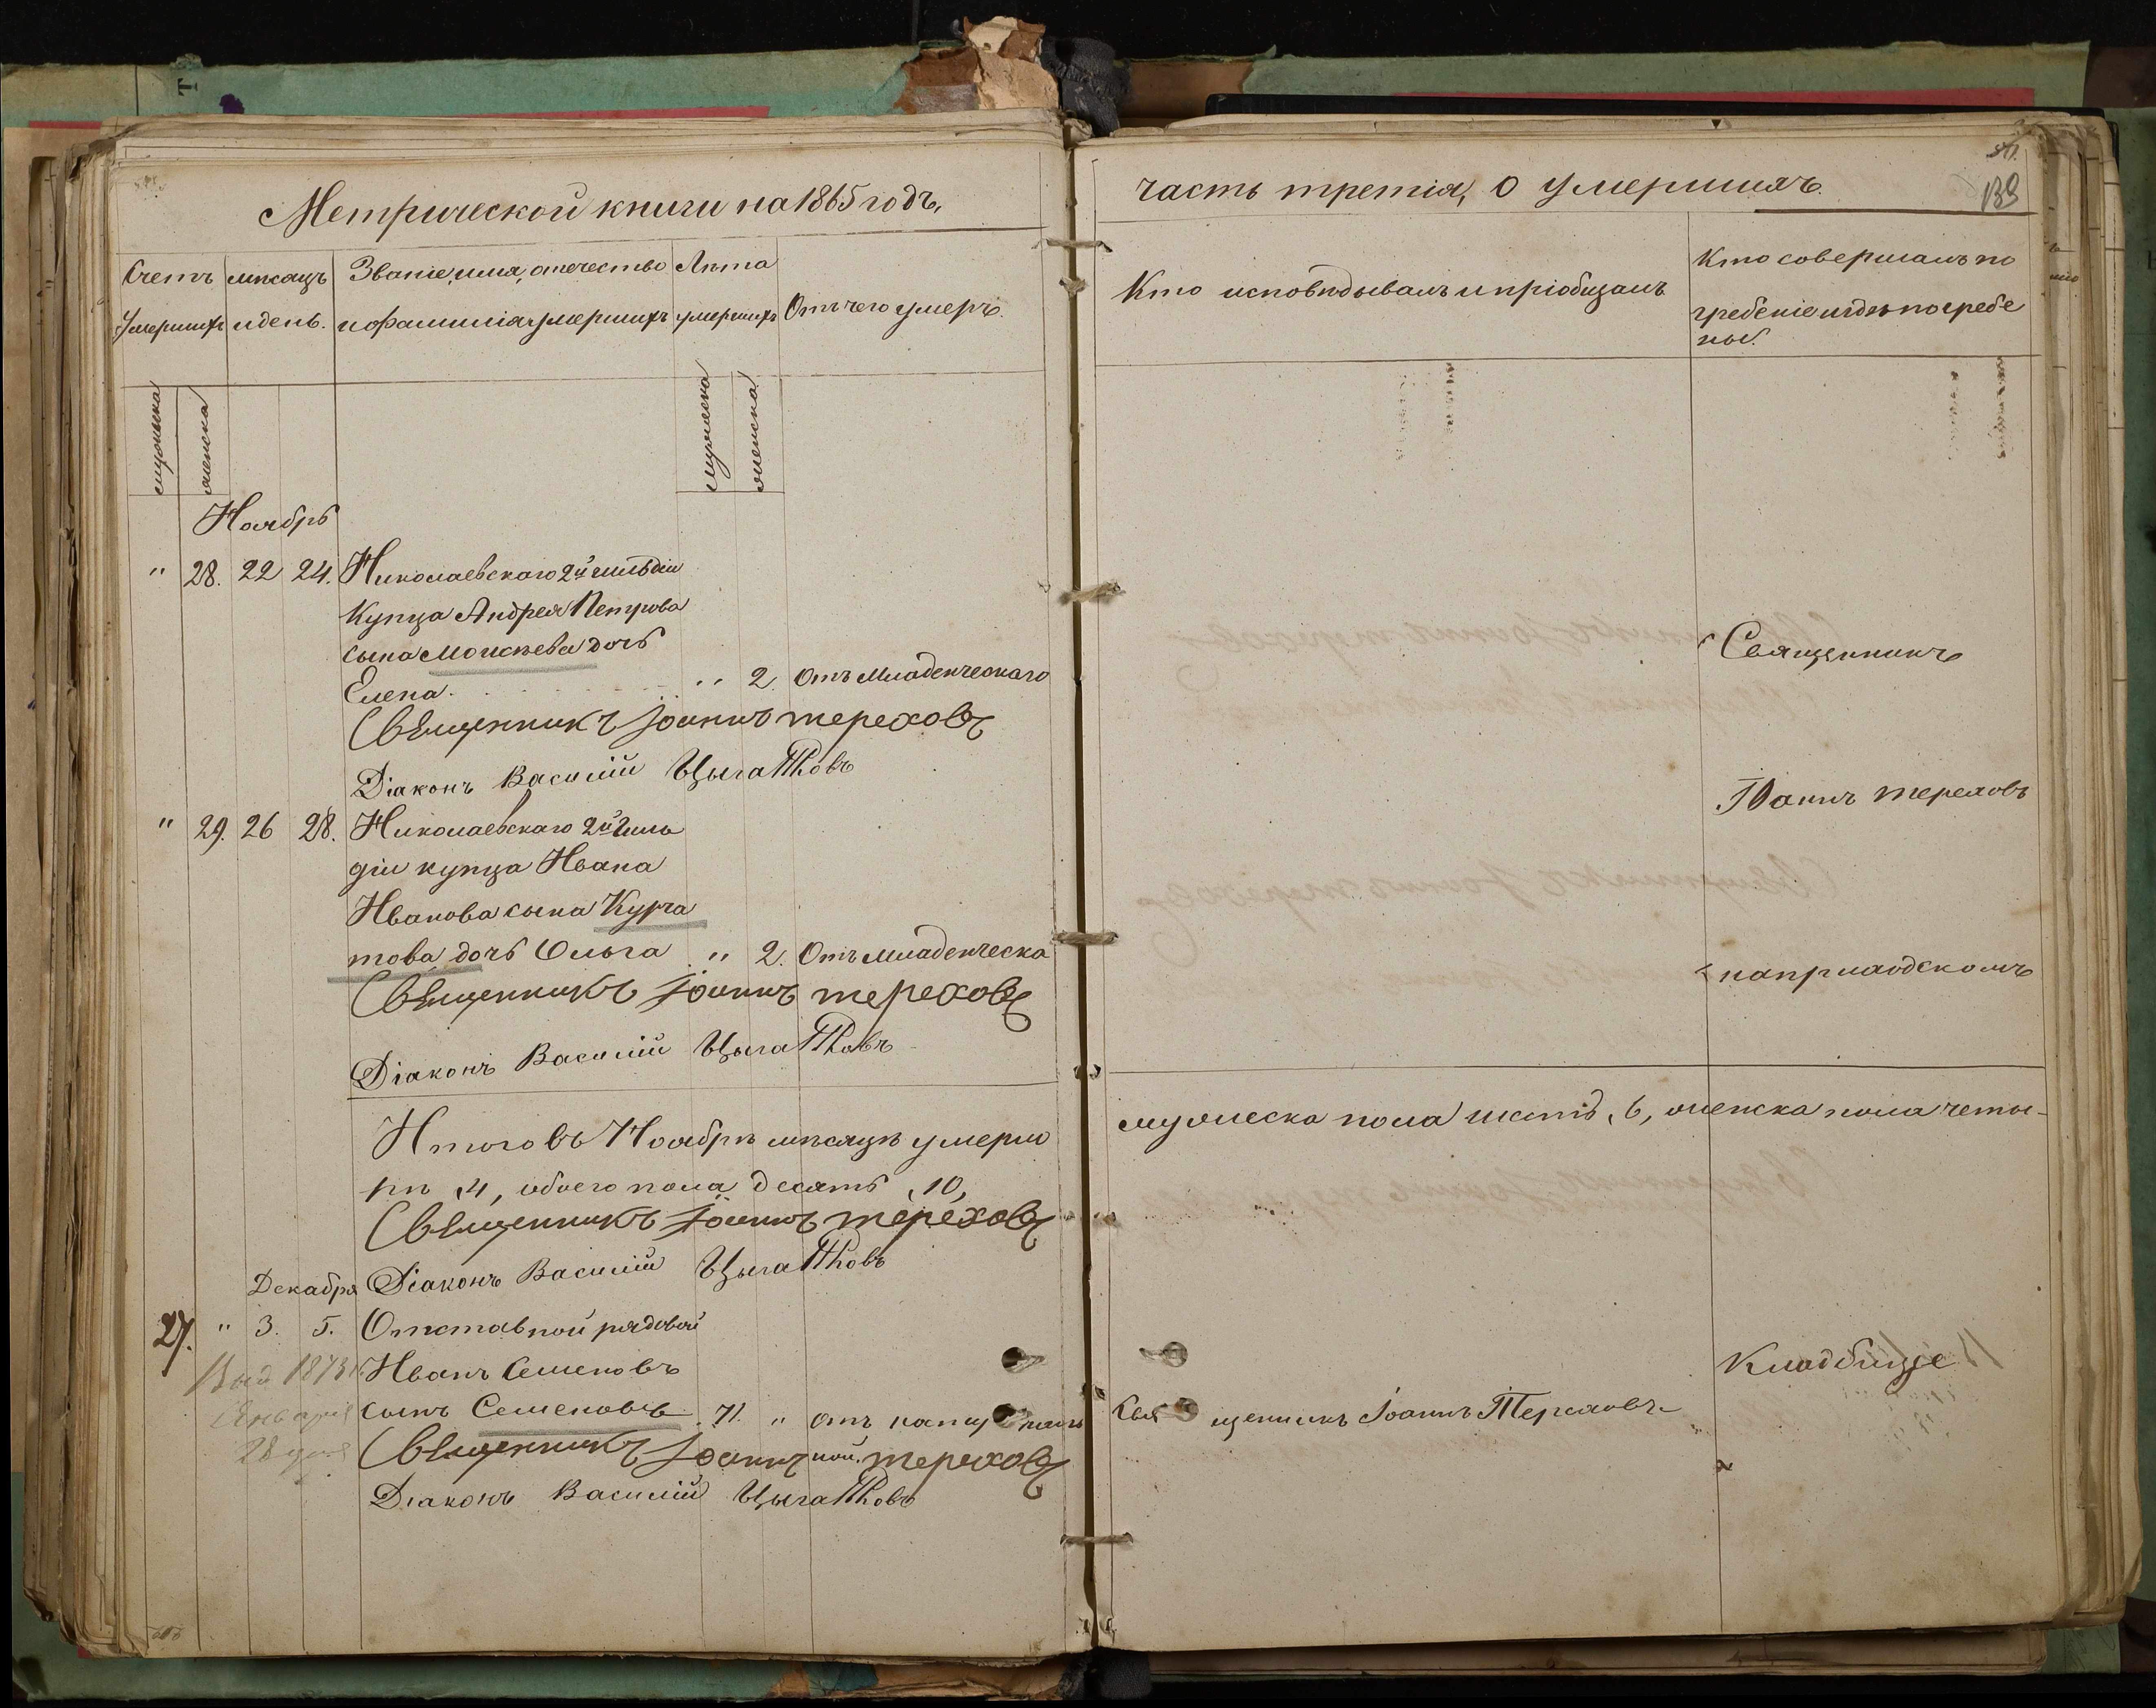 Метрической книги на 1865 годъ,
Счетъ умершихъ
мѣсяцъ и день.
Званіе, имя, отечество и фамилія умершихъ
Лѣта умершихъ
Отъ чего умеръ.
мужеска
женска
мужеска
женска
Ноябрь
" 28. 22 24. Николаевскаго 2й гильдіи
Купца Андрея Петрова
сына Моисѣева дочь
Елена. " 2. Отъ младенческаго
Священникъ Іоаннъ Тереховъ
Діаконъ Василій
" 29. 26 28. Николаевскаго 2й Гиль
діи купца Ивана
Иванова сына Курча
това дочь Ольга " 2. Отъ младенческа
Священникъ Іоаннъ Тереховъ
Діаконъ Василій
Итого въ Ноябрѣ мѣсяцѣ умерло
ре 4, обоего пола десять 10,
Священникъ Іоаннъ Тереховъ
Декабря Діаконъ Василій
27. " 3. 5. Отставной рядовой
1873 Иванъ Семеновъ
Января сынъ Семеновъ 71. " отъ
28 дня Священникъ Іоаннъ ной. Тереховъ
Діаконъ Василій
часть третія, О умершихъ.
139
Кто исповѣдывалъ и пріобщалъ
Кто совершалъ по
гребеніе и гдѣ погребе
ны.
Священникъ
Іоаннъ Тереховъ
на приходскомъ
мужеска пола шесть, 6, женска пола четы-
Кладбище
Священникъ Іоаннъ Тереховъ